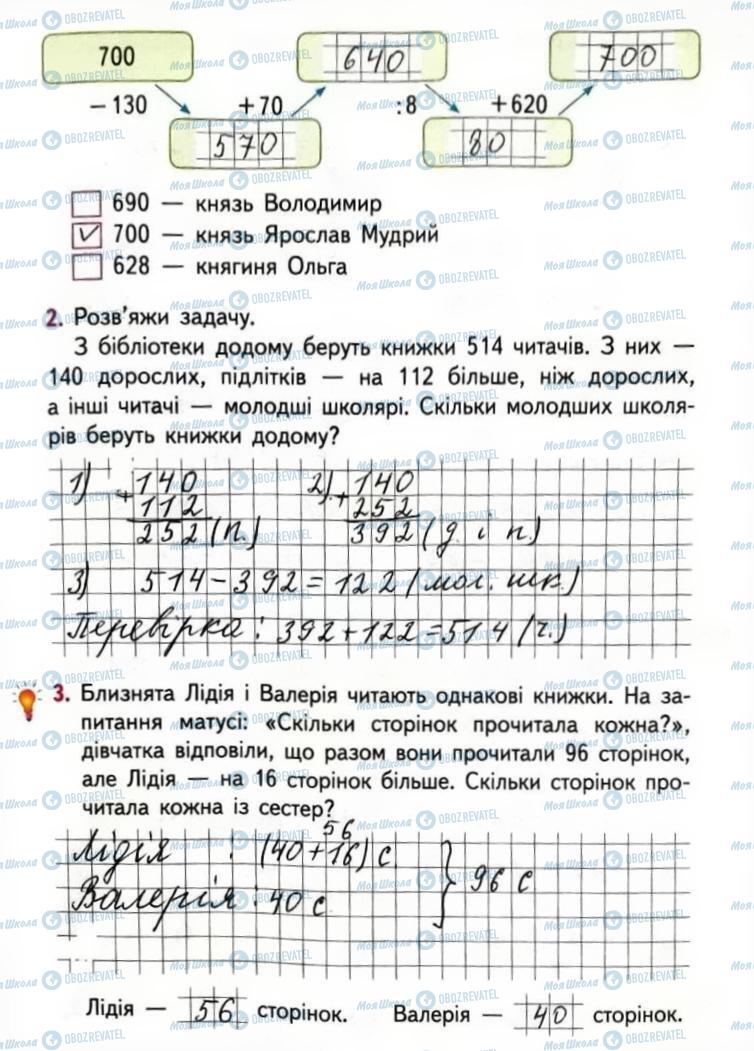 700 640 700
– 130 + 70 :8 + 620
570 80
690 — князь Володимир
✓ 700 — князь Ярослав Мудрий
628 — княгиня Ольга
2. Розв'яжи задачу.
З бібліотеки додому беруть книжки 514 читачів. З них —
140 дорослих, підлітків — на 112 більше, ніж дорослих,
а інші читачі — молодші школярі. Скільки молодших школя-
рів беруть книжки додому?
1) 140 2) 140
+ 112 + 252
252 (п.) 392 (д. і п.)
3) 514 – 392 = 122 (мол. шк.)
Перевірка: 392 + 122 = 514 (ч.)
3. Близнята Лідія і Валерія читають однакові книжки. На за-
питання матусі: «Скільки сторінок прочитала кожна?»,
дівчатка відповіли, що разом вони прочитали 96 сторінок,
але Лідія — на 16 сторінок більше. Скільки сторінок про-
читала кожна із сестер?
56
Лідія : (40 + 16) с.
Валерія : 40 с. } 96 с
Лідія — 56 сторінок. Валерія — 40 сторінок.
Моя Школа OBOZREVATEL